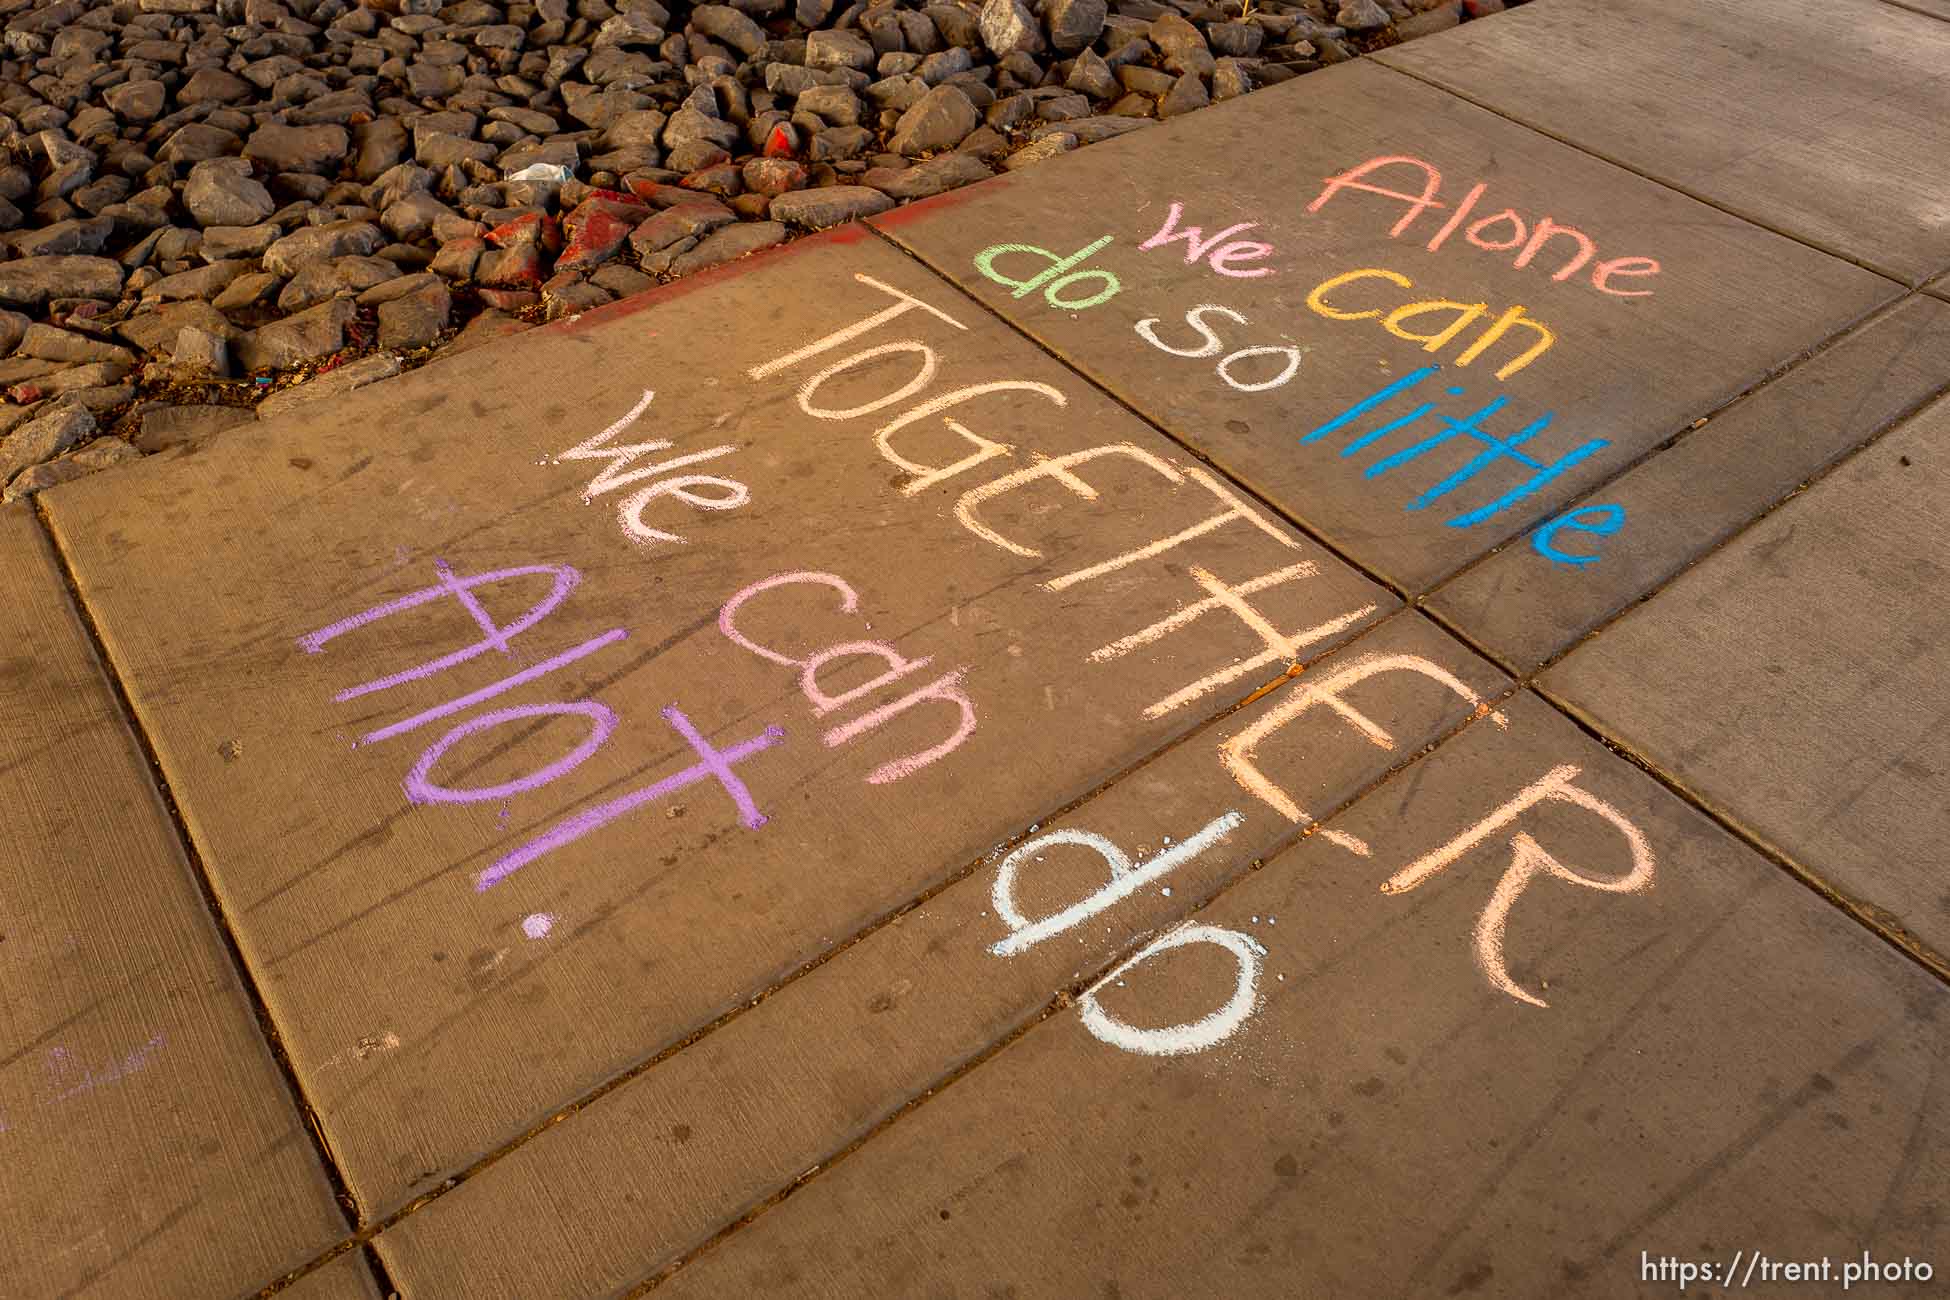 Alone
We can
do so little
TOGETHER
We can do
Alot.
https://trent.photo